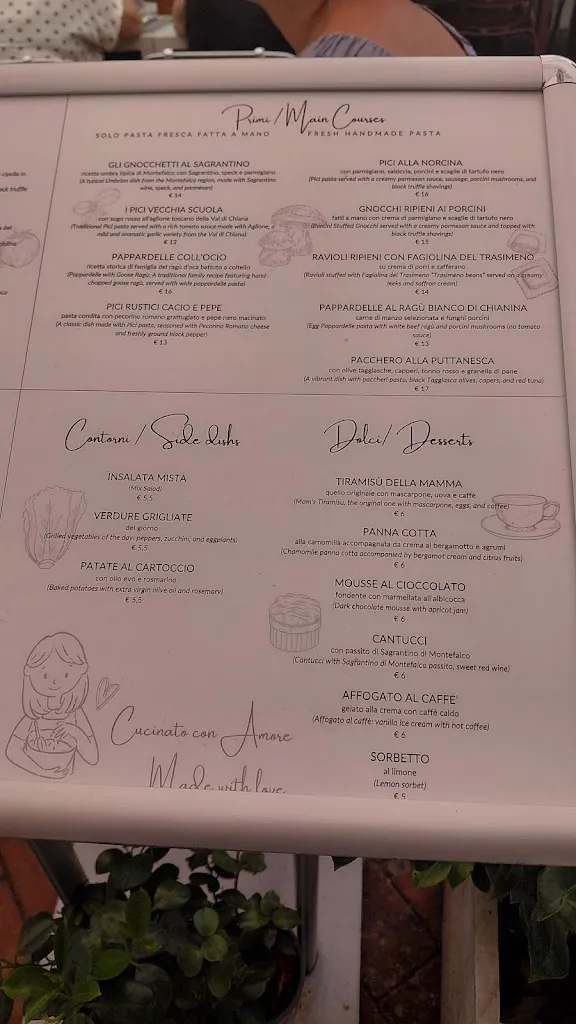 Primi / Main Courses
SOLO PASTA FRESCA FATTA A MANO FRESH HANDMADE PASTA
GLI GNOCCHETTI AL SAGRANTINO
ricetta umbra tipica di Montefalco con Sagrantino, speck e parmigiano
(A typical Umbrian dish from the Montefalco region, made with Sagrantino
wine, speck, and parmesan)
€ 14
I PICI VECCHIA SCUOLA
con sugo rosso all'aglione toscano della Val di Chiana
(Traditional Pici pasta served with a rich tomato sauce made with Aglione, a
mild and aromatic garlic variety from the Val di Chiana)
€ 12
PAPPARDELLE COLL'OCIO
ricetta storica di famiglia del ragù d'oca battuto a coltello
(Pappardelle with Goose Ragù: A traditional family recipe featuring hand
chopped goose ragù, served with wide pappardelle pasta)
€ 16
PICI RUSTICI CACIO E PEPE
pasta condita con pecorino romano grattugiato e pepe nero macinato
(A classic dish made with Pici pasta, seasoned with Pecorino Romano cheese
and freshly ground black pepper)
€ 13
PICI ALLA NORCINA
con parmigiano, salsiccia, porcini e scaglie di tartufo nero
(Pici pasta served with a creamy parmesan sauce, sausage, porcini mushrooms, and
black truffle shavings)
€ 16
GNOCCHI RIPIENI AI PORCINI
fatti a mano con crema di parmigiano e scaglie di tartufo nero
(Porcini Stuffed Gnocchi served with a creamy parmesan sauce and topped with
black truffle shavings)
€ 15
RAVIOLI RIPIENI CON FAGIOLINA DEL TRASIMENO
su crema di porri e zafferano
(Ravioli stuffed with Fagiolina del Trasimeno "Trasimeno beans" served on a creamy
leeks and saffron cream)
€ 14
PAPPARDELLE AL RAGÙ BIANCO DI CHIANINA
carne di manzo selezionata e funghi porcini
(Egg Pappardelle pasta with white beef ragù and porcini mushrooms (no tomato
sauce)
€ 13
PACCHERO ALLA PUTTANESCA
con olive taggiasche, capperi, tonno rosso e granella di pane
(A vibrant dish with paccheri pasta, black Taggiasca olives, capers, and red tuna)
€ 17
Contorni / Side dishs
INSALATA MISTA
(Mix Salad)
€ 5,5
VERDURE GRIGLIATE
del giorno
(Grilled vegetables of the day: peppers, zucchini, and eggplants)
€ 5,5
PATATE AL CARTOCCIO
con olio evo e rosmarino
(Baked potatoes with extra virgin olive oil and rosemary)
€ 5,5
Cucinato con Amore
Made with love
Dolci / Desserts
TIRAMISÙ DELLA MAMMA
quello originale con mascarpone, uova e caffè
(Mom's Tiramisu, the original one with mascarpone, eggs, and coffee)
€ 6
PANNA COTTA
alla camomilla accompagnata da crema al bergamotto e agrumi
(Chamomile panna cotta accompanied by bergamot cream and citrus fruits)
€ 6
MOUSSE AL CIOCCOLATO
fondente con marmellata all'albicocca
(Dark chocolate mousse with apricot jam)
€ 6
CANTUCCI
con passito di Sagrantino di Montefalco
(Cantucci with Sagrantino di Montefalco passito, sweet red wine)
€ 6
AFFOGATO AL CAFFE'
gelato alla crema con caffè caldo
(Affogato al caffè: vanilla ice cream with hot coffee)
€ 6
SORBETTO
al limone
(Lemon sorbet)
€ 5